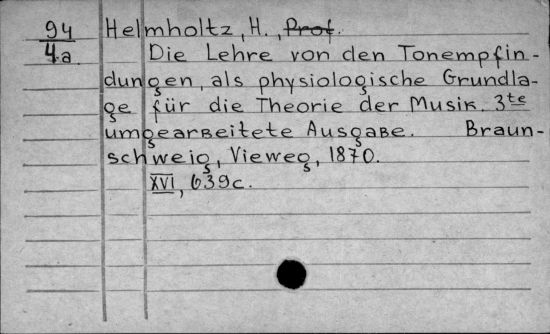 94 Helmholtz, H., Prof.
4a Die Lehre von den Tonempfin-
dungen, als physiologische Grundla-
ge für die Theorie der Musik. 3te
umgearbeitete Ausgabe. Braun-
schweig, Vieweg, 1870.
XVI, 639c.